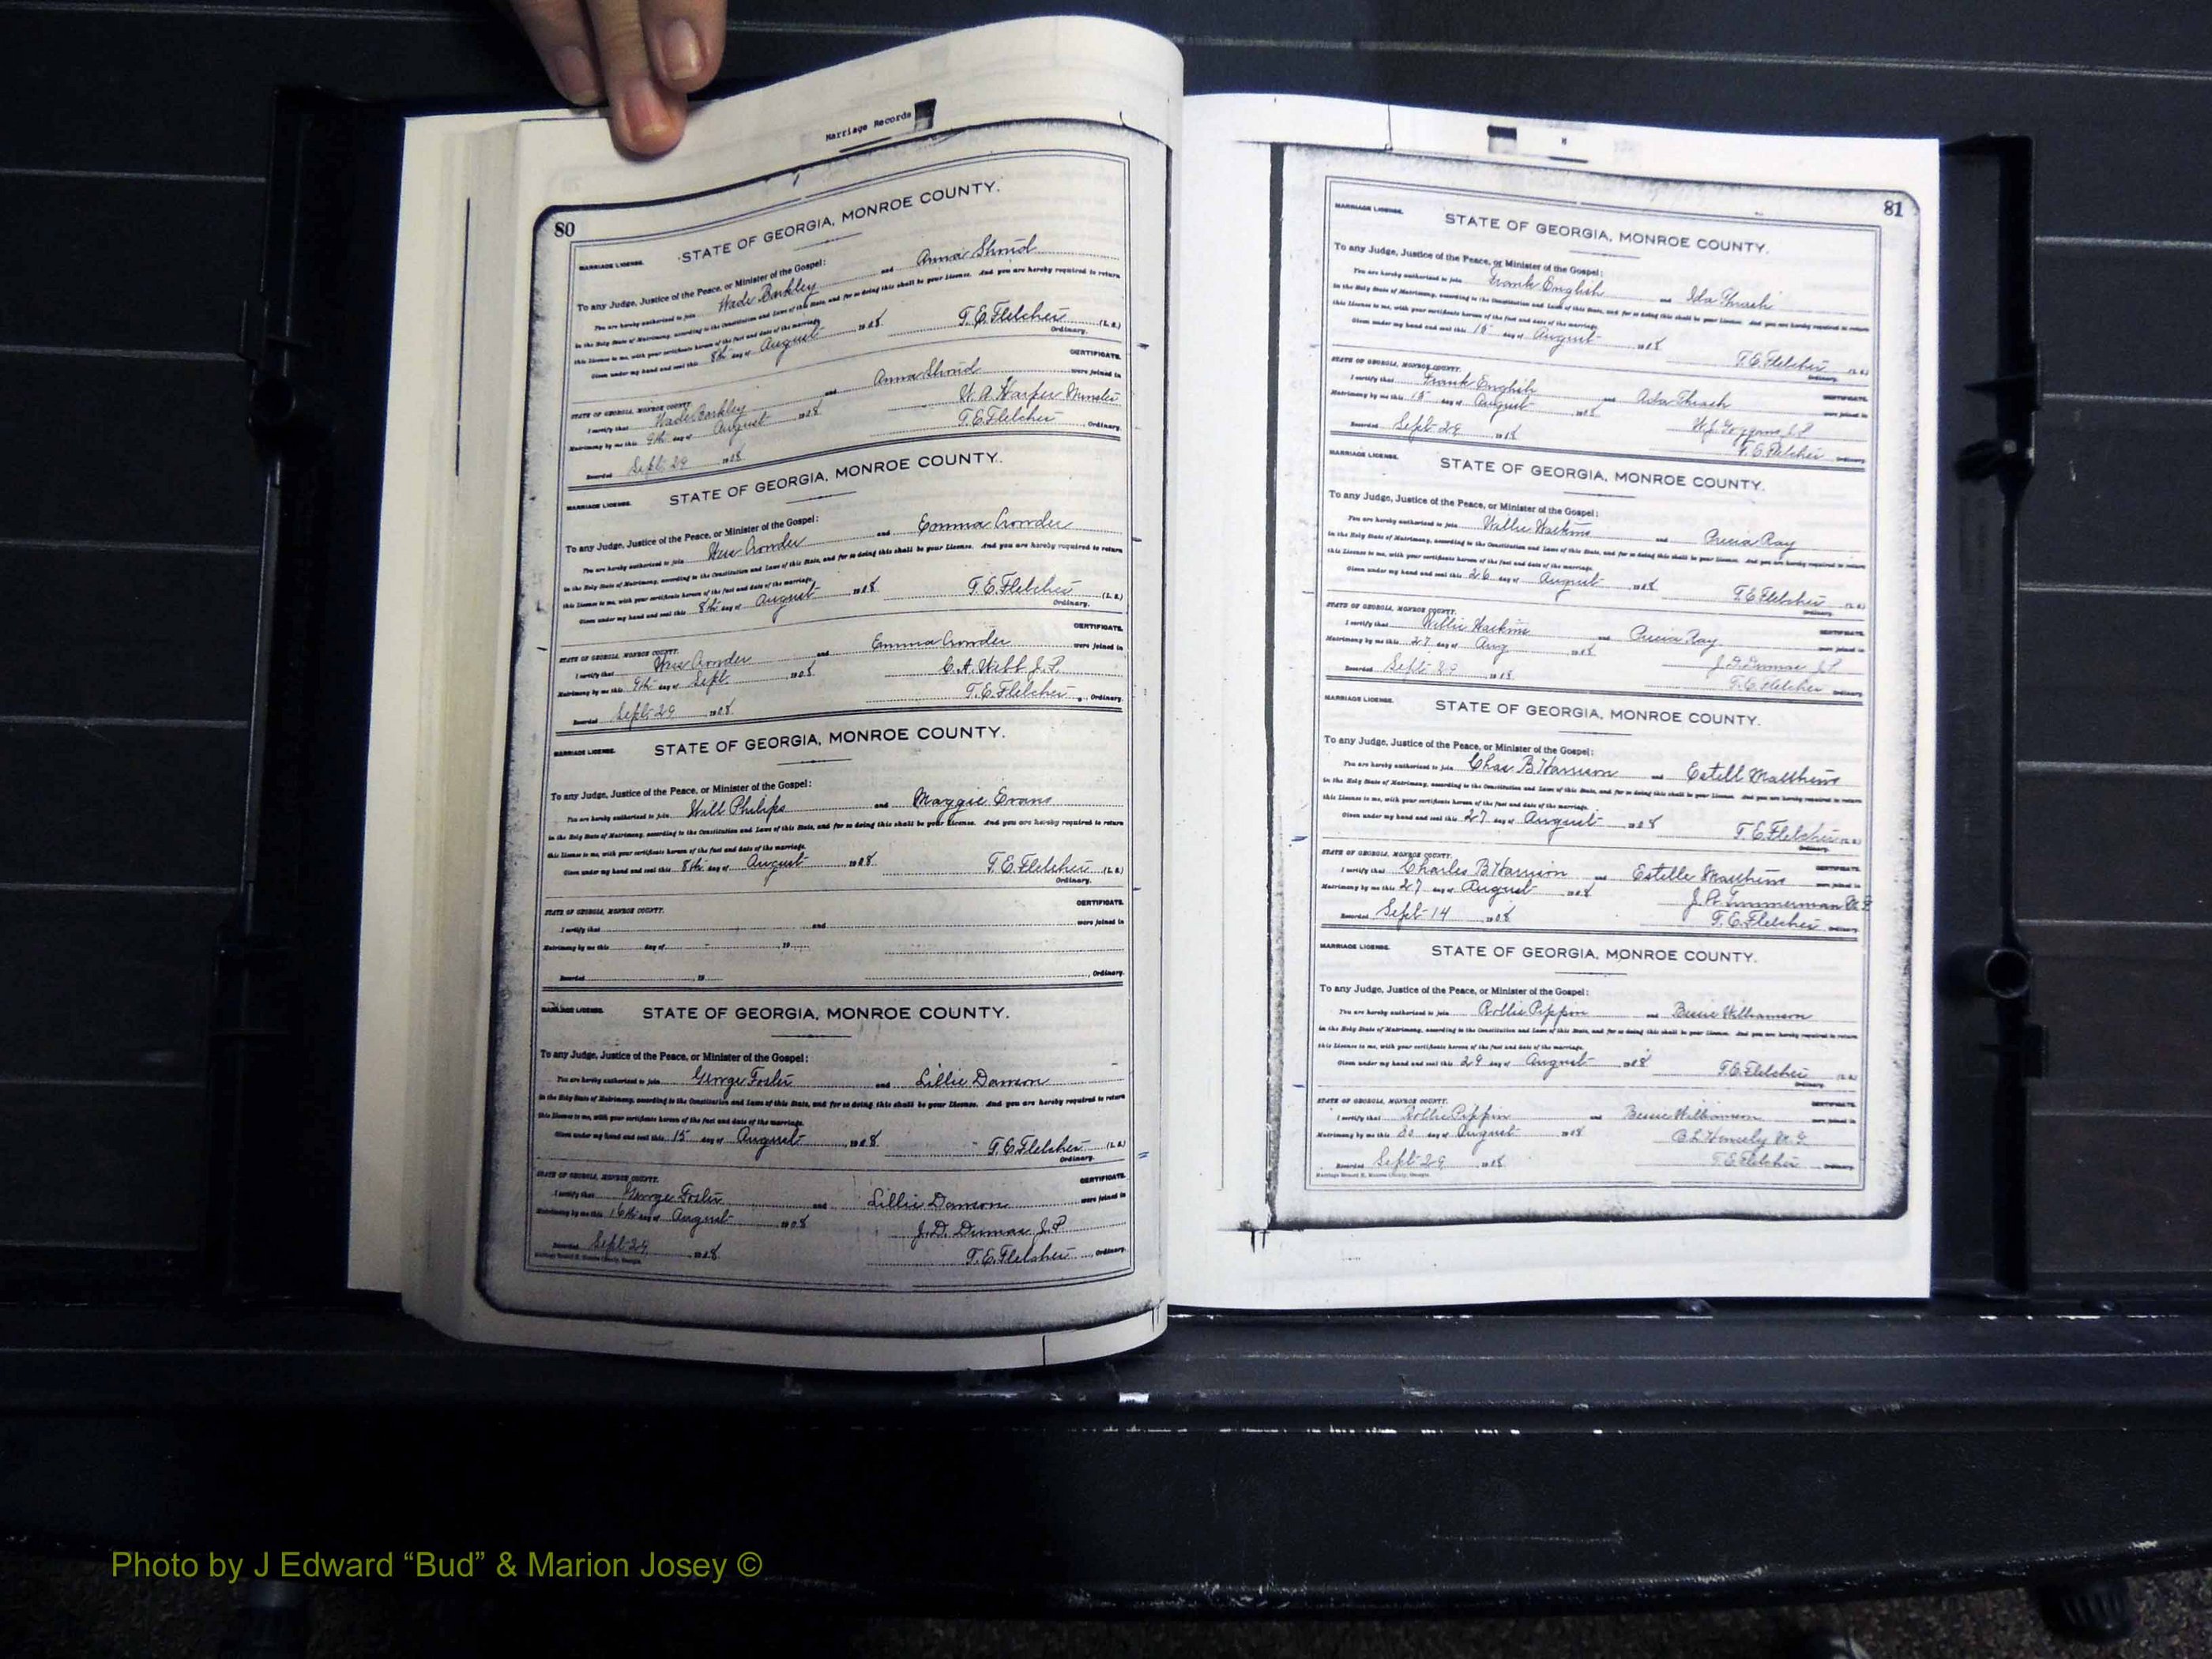 Marriage Records
80
MARRIAGE LICENSE.
STATE OF GEORGIA, MONROE COUNTY.
To any Judge, Justice of the Peace, or Minister of the Gospel:
You are hereby authorized to join Wade Barkley and Anna Shnid
in the Holy State of Matrimony, according to the Constitution and Laws of this State, and for so doing this shall be your License. And you are hereby required to return
this License to me, with your certificate hereon of the fact and date of the marriage.
Given under my hand and seal this 8th day of August 1908
T. E. Fletcher (L. S.)
Ordinary.
CERTIFICATE.
STATE OF GEORGIA, MONROE COUNTY.
I certify that Wade Barkley and Anna Shnid were joined in
Matrimony by me this 9th day of August 1908 W. A. Harper Minister
Recorded Sept 29 1908 T. E. Fletcher Ordinary.
MARRIAGE LICENSE.
STATE OF GEORGIA, MONROE COUNTY.
To any Judge, Justice of the Peace, or Minister of the Gospel:
You are hereby authorized to join Wes Crowder and Emma Crowder
in the Holy State of Matrimony, according to the Constitution and Laws of this State, and for so doing this shall be your License. And you are hereby required to return
this License to me, with your certificate hereon of the fact and date of the marriage.
Given under my hand and seal this 8th day of August 1908
T. E. Fletcher (L. S.)
Ordinary.
CERTIFICATE.
STATE OF GEORGIA, MONROE COUNTY.
I certify that Wes Crowder and Emma Crowder were joined in
Matrimony by me this 9th day of Sept 1908 C. A. Webb J. P.
Recorded Sept 29 1908 T. E. Fletcher, Ordinary.
MARRIAGE LICENSE.
STATE OF GEORGIA, MONROE COUNTY.
To any Judge, Justice of the Peace, or Minister of the Gospel:
You are hereby authorized to join Will Philips and Maggie Evans
in the Holy State of Matrimony, according to the Constitution and Laws of this State, and for so doing this shall be your License. And you are hereby required to return
this License to me, with your certificate hereon of the fact and date of the marriage.
Given under my hand and seal this 8th day of August 1908
T. E. Fletcher (L. S.)
Ordinary.
CERTIFICATE.
STATE OF GEORGIA, MONROE COUNTY.
I certify that and were joined in
Matrimony by me this day of 19
Recorded , 19 , Ordinary.
MARRIAGE LICENSE.
STATE OF GEORGIA, MONROE COUNTY.
To any Judge, Justice of the Peace, or Minister of the Gospel:
You are hereby authorized to join George Foster and Lillie Damson
in the Holy State of Matrimony, according to the Constitution and Laws of this State, and for so doing this shall be your License. And you are hereby required to return
this License to me, with your certificate hereon of the fact and date of the marriage.
Given under my hand and seal this 15 day of August 1908
T. E. Fletcher (L. S.)
Ordinary.
CERTIFICATE.
STATE OF GEORGIA, MONROE COUNTY.
I certify that George Foster and Lillie Damson were joined in
Matrimony by me this 16th day of August 1908 J. D. Dumas J. P
Recorded Sept 29 1908 T. E. Fletcher, Ordinary.
Marriage Record H, Monroe County, Georgia.
81
MARRIAGE LICENSE.
STATE OF GEORGIA, MONROE COUNTY.
To any Judge, Justice of the Peace, or Minister of the Gospel:
You are hereby authorized to join Frank English and Ida Thrash
in the Holy State of Matrimony, according to the Constitution and Laws of this State, and for so doing this shall be your License. And you are hereby required to return
this License to me, with your certificate hereon of the fact and date of the marriage.
Given under my hand and seal this 15 day of August 1908
T. E. Fletcher (L. S.)
Ordinary.
STATE OF GEORGIA, MONROE COUNTY.
CERTIFICATE.
I certify that Frank English and Ada Thrash were joined in
Matrimony by me this 15 day of August 1908 J. P
Recorded Sept 29 1908 T. E. Fletcher Ordinary.
MARRIAGE LICENSE.
STATE OF GEORGIA, MONROE COUNTY.
To any Judge, Justice of the Peace, or Minister of the Gospel:
You are hereby authorized to join Willie Watkins and Ray
in the Holy State of Matrimony, according to the Constitution and Laws of this State, and for so doing this shall be your License. And you are hereby required to return
this License to me, with your certificate hereon of the fact and date of the marriage.
Given under my hand and seal this 26 day of August 1908
T. E. Fletcher (L. S.)
Ordinary.
STATE OF GEORGIA, MONROE COUNTY.
CERTIFICATE.
I certify that Willie Watkins and Ray were joined in
Matrimony by me this 27 day of Aug 1908 J. D. Dumas J. P.
Recorded Sept 29 1908 T. E. Fletcher Ordinary.
MARRIAGE LICENSE.
STATE OF GEORGIA, MONROE COUNTY.
To any Judge, Justice of the Peace, or Minister of the Gospel:
You are hereby authorized to join Chas B Harrison and Estell Matthews
in the Holy State of Matrimony, according to the Constitution and Laws of this State, and for so doing this shall be your License. And you are hereby required to return
this License to me, with your certificate hereon of the fact and date of the marriage.
Given under my hand and seal this 27 day of August 1908
T. E. Fletcher (L. S.)
Ordinary.
STATE OF GEORGIA, MONROE COUNTY.
CERTIFICATE.
I certify that Charles B Harrison and Estelle Matthews were joined in
Matrimony by me this 27 day of August 1908 J. P. Timmerman M. G
Recorded Sept 14 1908 T. E. Fletcher Ordinary.
MARRIAGE LICENSE.
STATE OF GEORGIA, MONROE COUNTY.
To any Judge, Justice of the Peace, or Minister of the Gospel:
You are hereby authorized to join Rollie Pippin and Bessie Williamson
in the Holy State of Matrimony, according to the Constitution and Laws of this State, and for so doing this shall be your License. And you are hereby required to return
this License to me, with your certificate hereon of the fact and date of the marriage.
Given under my hand and seal this 29 day of August 1908
T. E. Fletcher (L. S.)
Ordinary.
STATE OF GEORGIA, MONROE COUNTY.
CERTIFICATE.
I certify that Rollie Pippin and Bessie Williamson were joined in
Matrimony by me this 30 day of August 1908 M. G
Recorded Sept 29 1908 T. E. Fletcher Ordinary.
Marriage Record H, Monroe County, Georgia.
Photo by J Edward “Bud” & Marion Josey ©